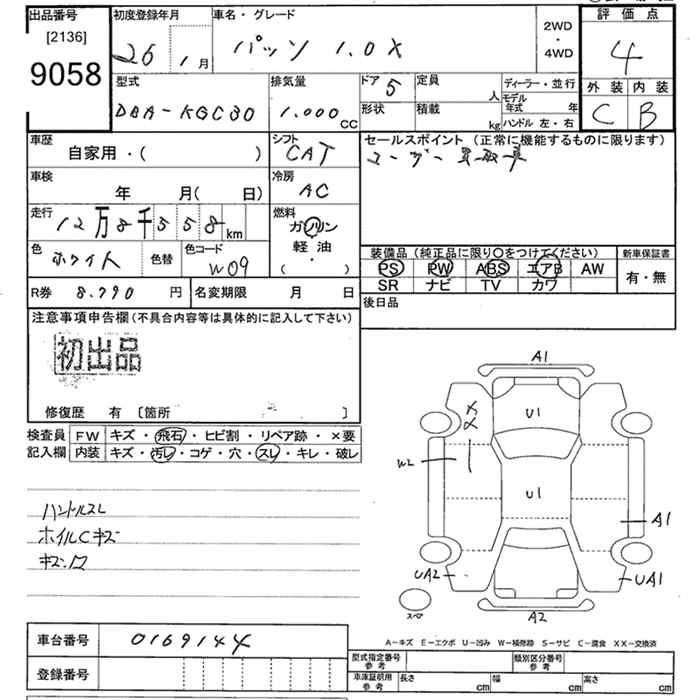 出品番号 [2136] 9058
初度登録年月 26年 1月
車名・グレード パッソ 1.0X
2WD・4WD
評価点 4
外装 C 内装 B
型式 DBA-KGC30
排気量 1.000 CC
ドア 5
形状
定員 人
積載 kg
ディーラー・並行
モデル年式 年
ハンドル 左・右
車歴 自家用・( )
シフト CAT
セールスポイント (正常に機能するものに限ります)
ユーザー買取車
車検 年 月( 日)
冷房 AC
走行 12万8千558km
燃料 ガソリン 軽油・( )
色 ホワイト 色替 色コード W09
装備品 (純正品に限り〇をつけてください) 新車保証書
PS PW ABS エアB AW 有・無
SR ナビ TV カワ
R券 8.790 円 名変期限 月 日
後日品
注意事項申告欄 (不具合内容等は具体的に記入して下さい)
初出品
修復歴 有 [箇所 ]
検査員記入欄
FW キズ・飛石・ヒビ割・リペア跡・×要
内装 キズ・汚レ・コゲ・穴・スレ・キレ・破レ
ハンドルスレ
ホイルCキズ
A1
U1
W2
U1
A1
UA2
UA1
A2
スペア
A-キズ E-エクボ U-凹み W-補修跡 S-サビ C-腐食 XX-交換済
車台番号 0169144
登録番号
型式指定番号参考 類別区分番号参考
車庫証明用参考 長さ cm 幅 cm 高さ cm